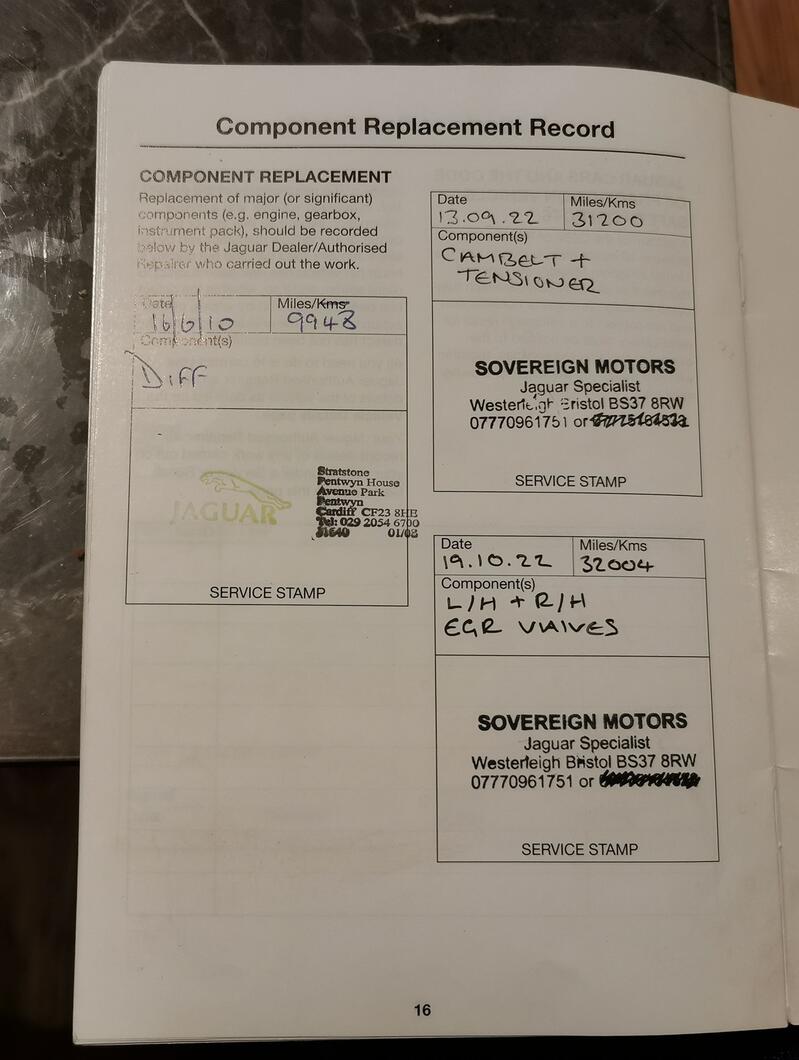 Component Replacement Record
COMPONENT REPLACEMENT
Replacement of major (or significant)
components (e.g. engine, gearbox,
instrument pack), should be recorded
below by the Jaguar Dealer/Authorised
Repairer who carried out the work.
Date
16/6/10
Miles/Kms
9948
Component(s)
DIFF
JAGUAR
Stratstone
Pentwyn House
Avenue Park
Pentwyn
Cardiff CF23 8HE
Tel: 029 2054 6700
J1640 01/08
SERVICE STAMP
Date
13.09.22
Miles/Kms
31200
Component(s)
CAMBELT +
TENSIONER
SOVEREIGN MOTORS
Jaguar Specialist
Westerleigh Bristol BS37 8RW
07770961751 or
SERVICE STAMP
Date
19.10.22
Miles/Kms
32004
Component(s)
L/H + R/H
EGR VALVES
SOVEREIGN MOTORS
Jaguar Specialist
Westerleigh Bristol BS37 8RW
07770961751 or
SERVICE STAMP
16